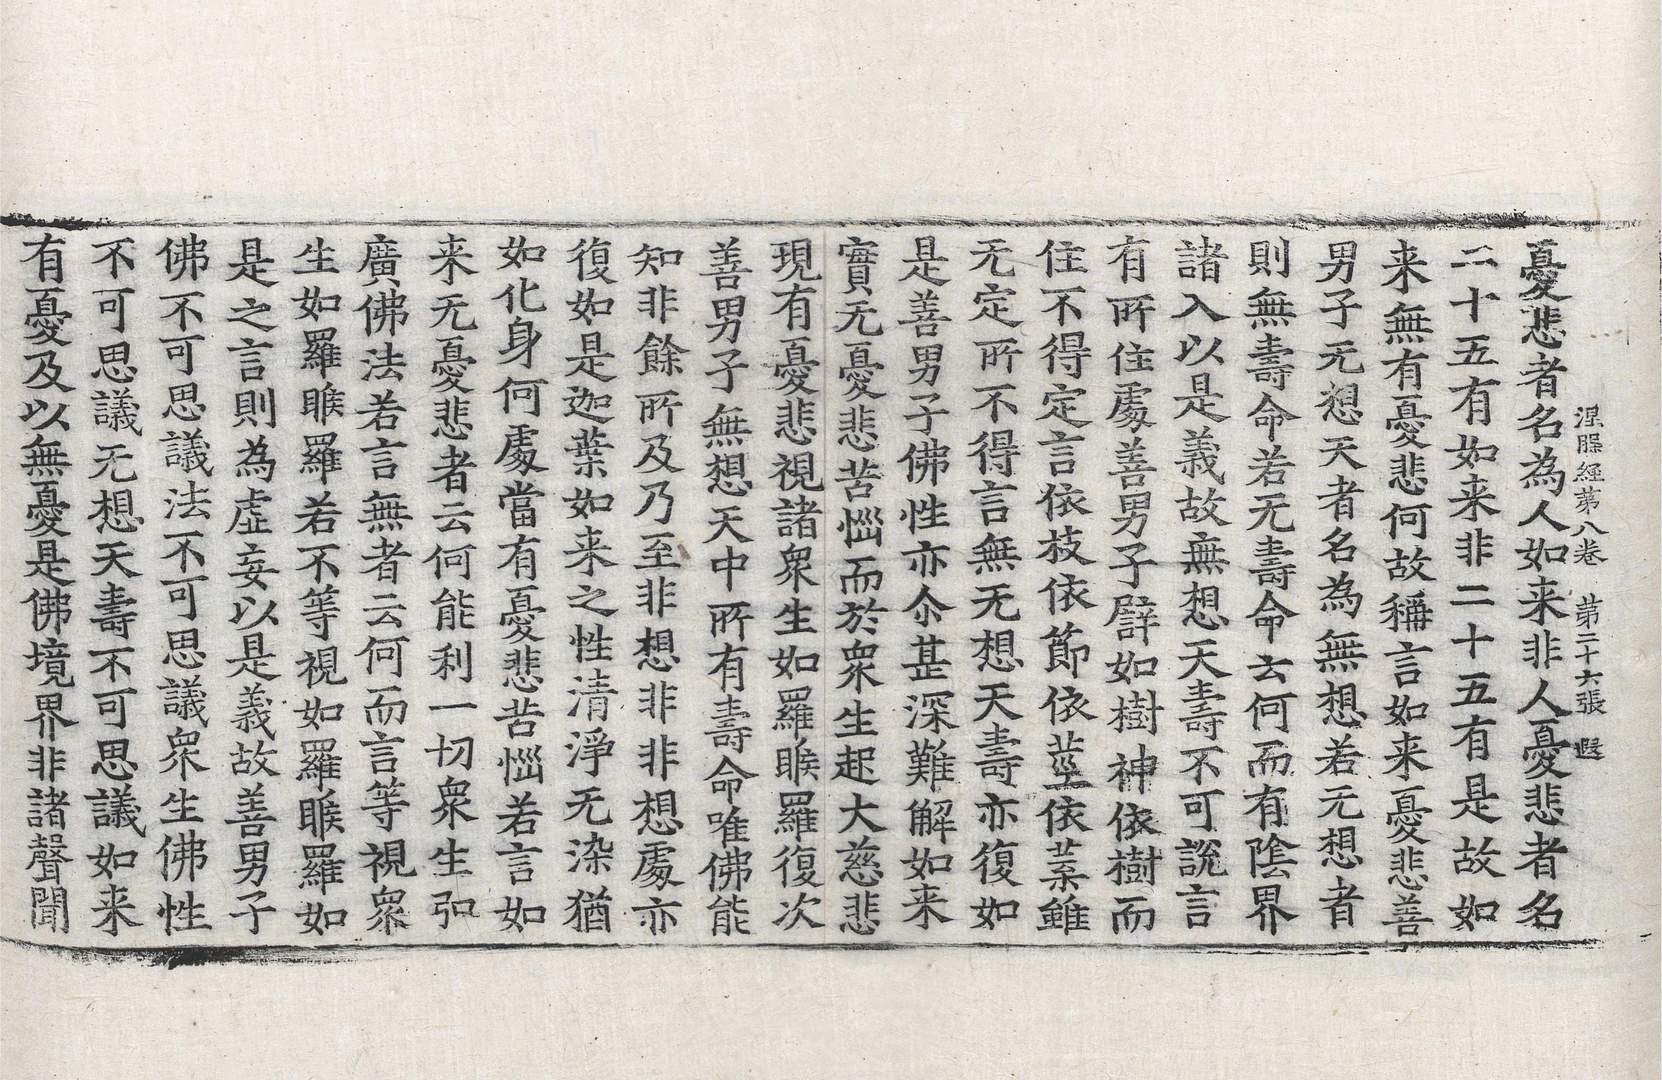 涅槃經第八卷 第二十六張 遐
憂悲者名為人如来非人憂悲者名
二十五有如来非二十五有是故如
来無有憂悲何故稱言如来憂悲善
男子无想天者名為無想若无想者
則無壽命若无壽命云何而有陰界
諸入以是義故無想天壽不可說言
有所住處善男子譬如樹神依樹而
住不得定言依枝依節依莖依葉雖
无定所不得言無无想天壽亦復如
是善男子佛性亦尒甚深難解如来
實无憂悲苦惱而於衆生起大慈悲
現有憂悲視諸衆生如羅睺羅復次
善男子無想天中所有壽命唯佛能
知非餘所及乃至非想非非想處亦
復如是迦葉如来之性清淨无染猶
如化身何處當有憂悲苦惱若言如
来无憂悲者云何能利一切衆生弘
廣佛法若言無者云何而言等視衆
生如羅睺羅若不等視如羅睺羅如
是之言則為虛妄以是義故善男子
佛不可思議法不可思議衆生佛性
不可思議无想天壽不可思議如来
有憂及以無憂是佛境界非諸聲聞